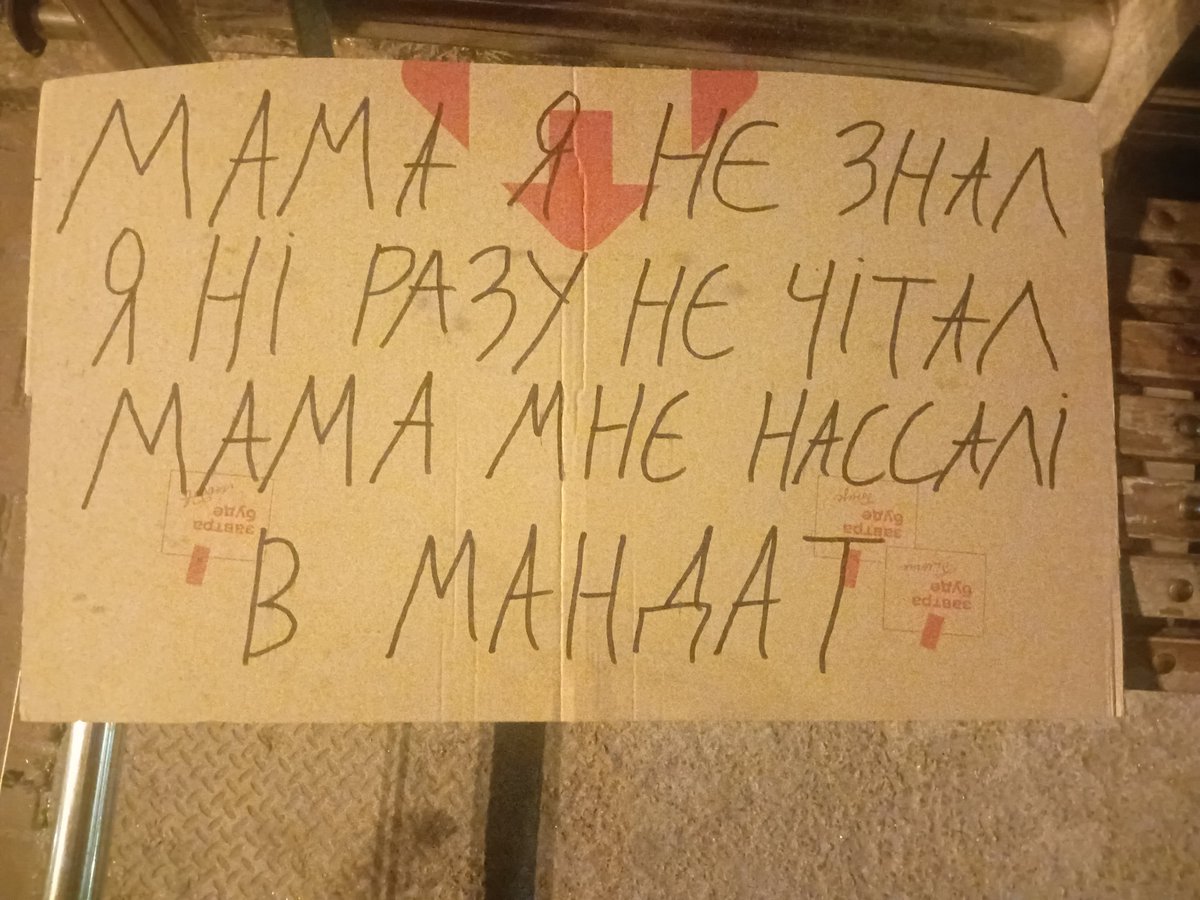 МАМА Я НЄ ЗНАЛ
Я НІ РАЗУ НЄ ЧІТАЛ
МАМА МНЄ НАССАЛІ
В МАНДАТ
завтра
буде
завтра
буде
завтра
буде